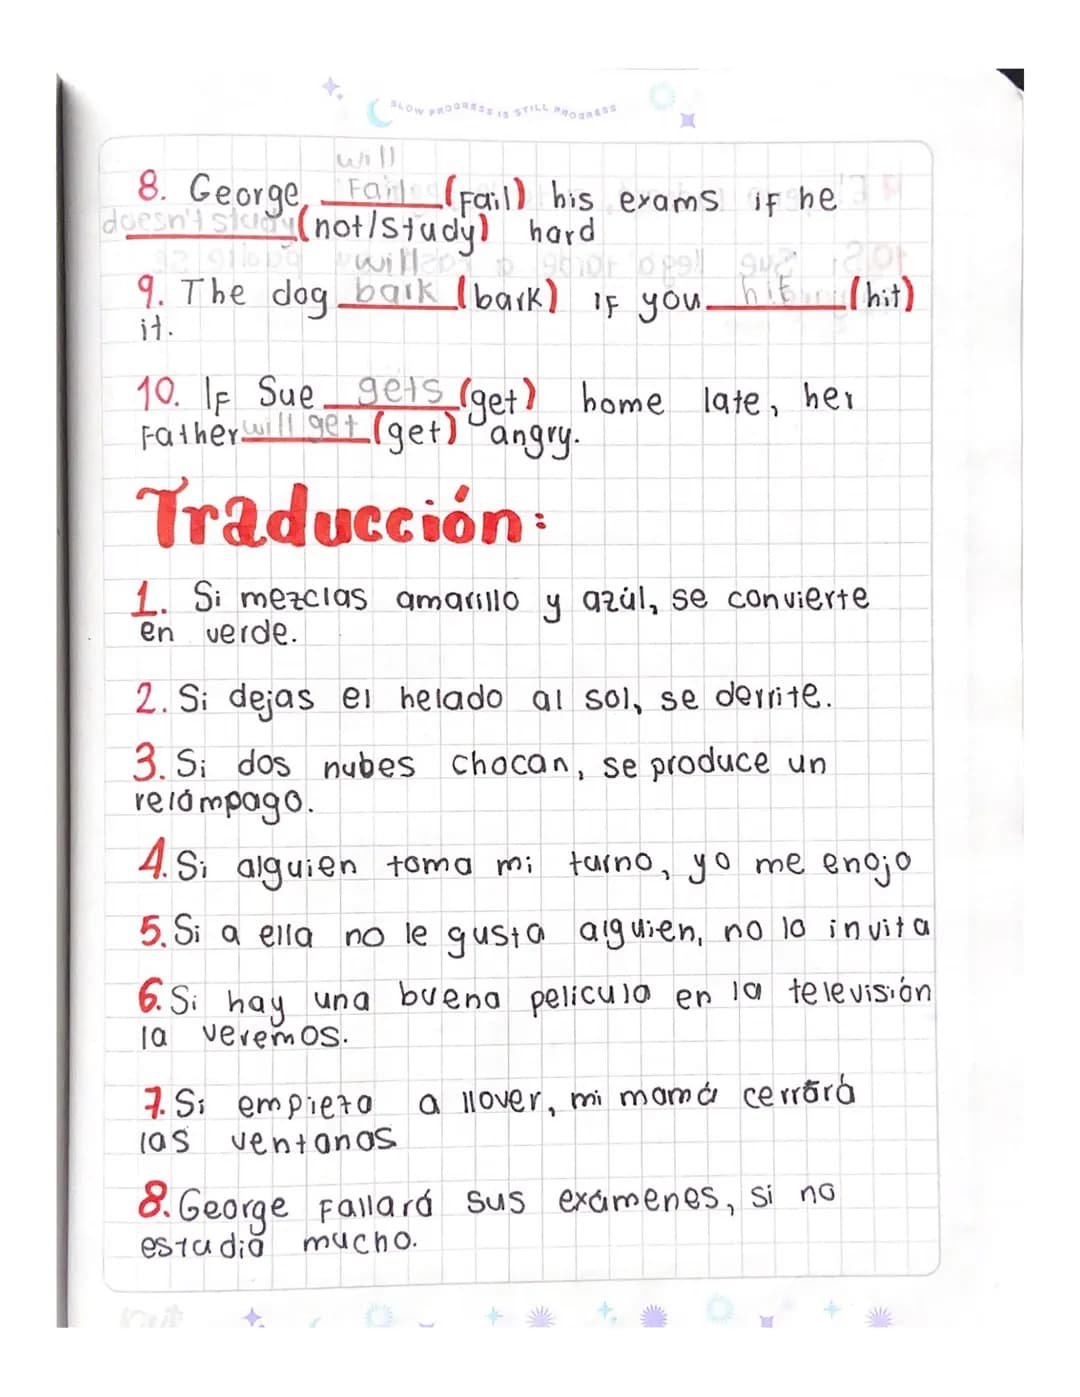 SLOW PROGRESS IS STILL PROGRESS
will
8. George, Fail (Fail) his exams if he
doesn't study (not/study) hard
will
9. The dog bark (bark) IF you hit (hit)
it.
10. IF Sue gets (get) home late, her
Father will get (get) angry.
Traducción:
1. Si mezclas amarillo y azúl, se convierte
en verde.
2. Si dejas el helado al sol, se derrite.
3. Si dos nubes chocan, se produce un
relámpago.
4. Si alguien toma mi turno, yo me enojo
5. Si a ella no le gusta alguien, no lo invita
6. Si hay una buena película en la televisión
la veremos.
7. Si empieza a llover, mi mamá cerrará
las ventanas
8. George Fallará sus exámenes, si no
estudia mucho.